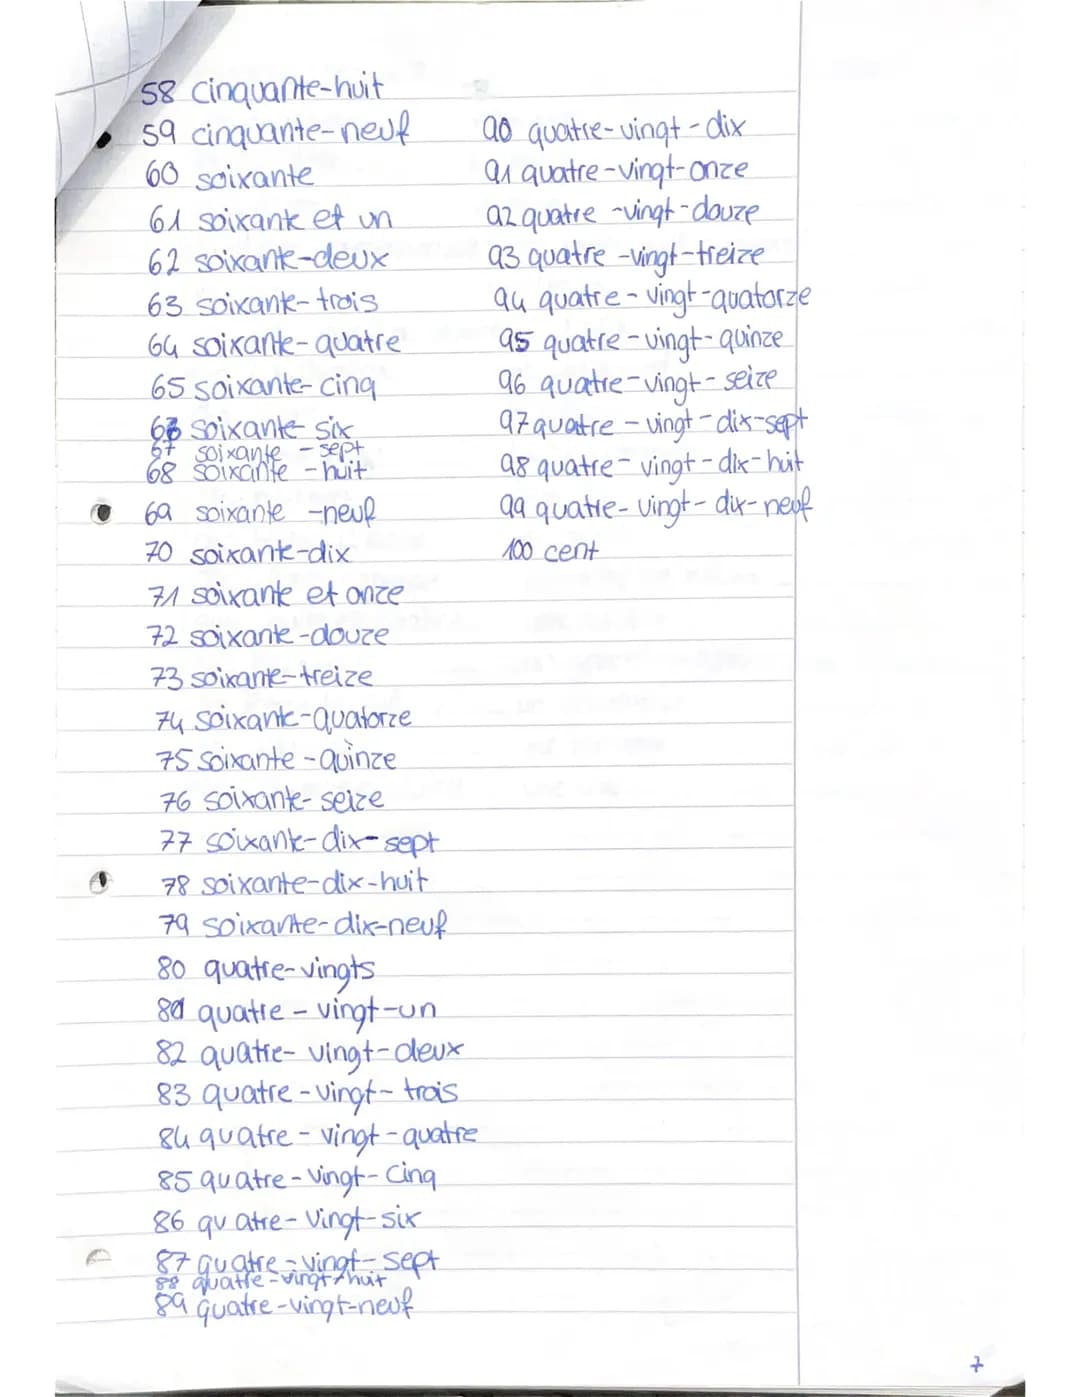 58 cinquante-huit
59 cinquante-neuf
60 soixante
61 soixante et un
62 soixante-deux
63 soixante-trois
64 soixante-quatre
65 soixante-cinq
66 soixante six
67 soixante - sept
68 soixante - huit
69 soixante -neuf
70 soixante-dix
71 soixante et onze
72 soixante-douze
73 soixante-treize
74 soixante-quatorze
75 soixante-quinze
76 soixante-seize
77 soixante-dix-sept
78 soixante-dix-huit
79 soixante-dix-neuf
80 quatre-vingts
81 quatre-vingt-un
82 quatre-vingt-deux
83 quatre-vingt-trois
84 quatre-vingt-quatre
85 quatre-vingt-cinq
86 quatre-vingt-six
87 quatre-vingt-sept
88 quatre-vingt-huit
89 quatre-vingt-neuf
90 quatre-vingt-dix
91 quatre-vingt-onze
92 quatre-vingt-douze
93 quatre-vingt-treize
94 quatre-vingt-quatorze
95 quatre-vingt-quinze
96 quatre-vingt-seize
97 quatre-vingt-dix-sept
98 quatre-vingt-dix-huit
99 quatre-vingt-dix-neuf
100 cent
7